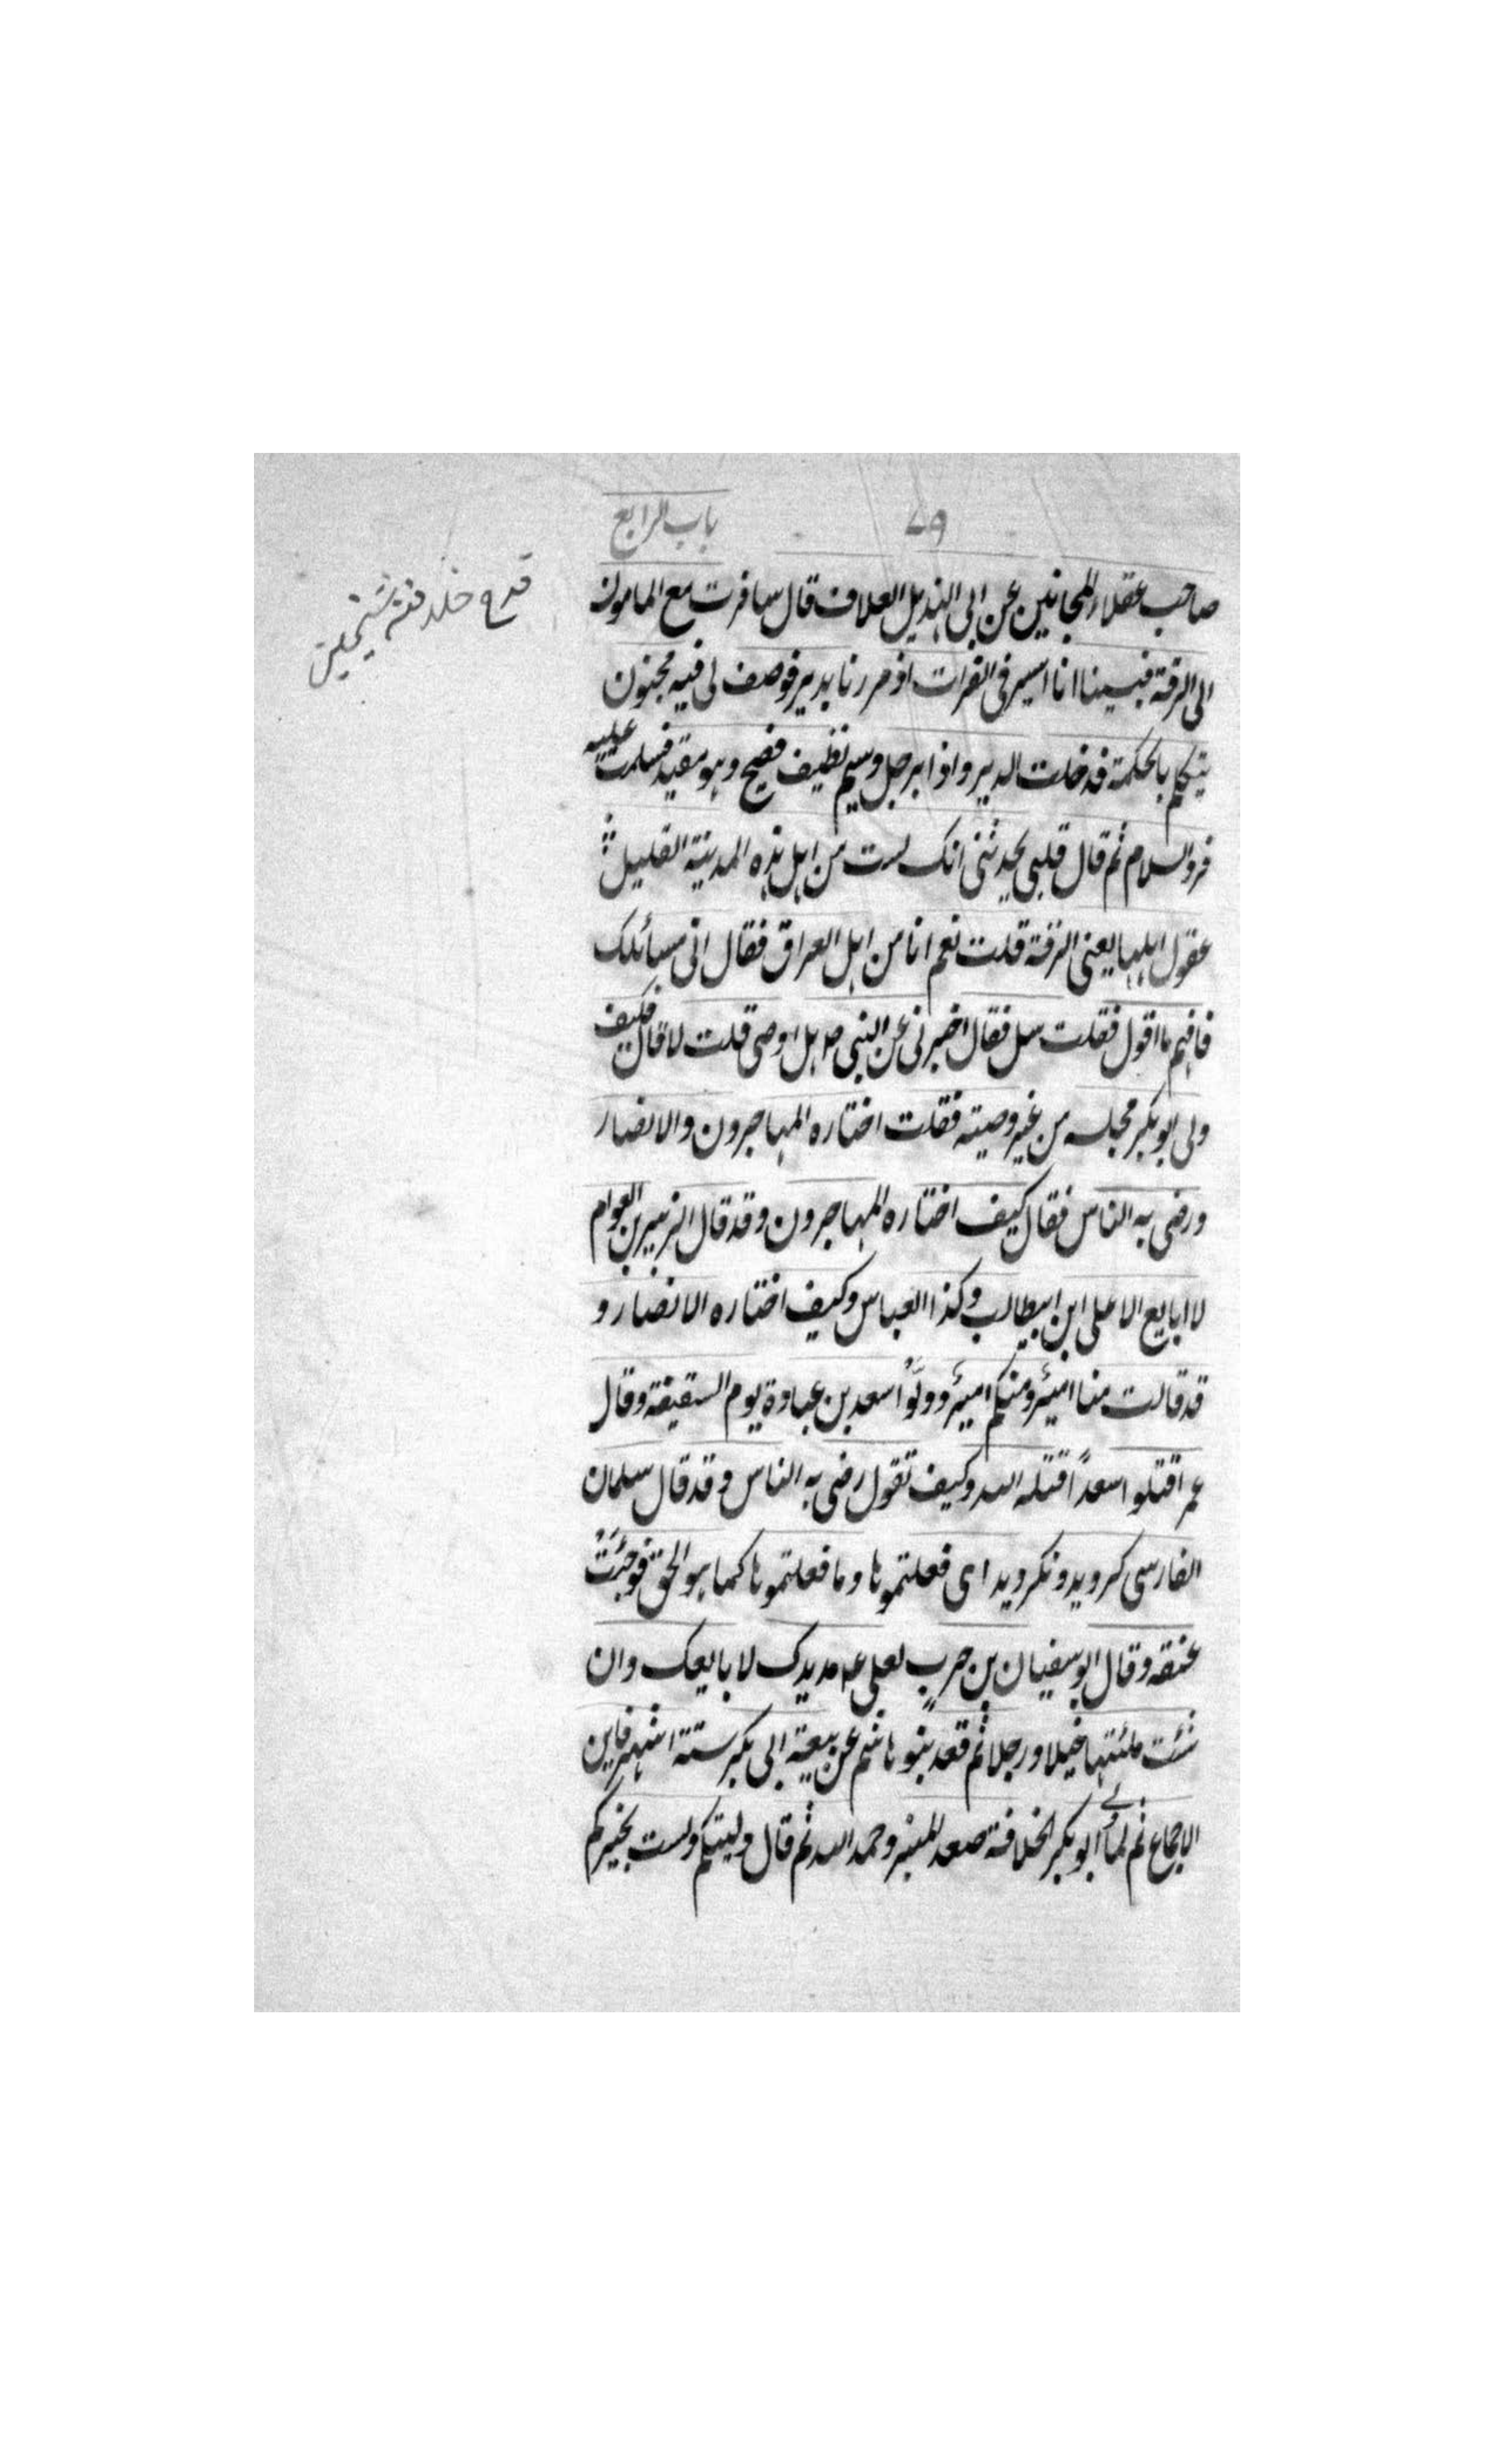 باب الرابع
صاحب عقلاء المجانین عن ابی الهذیل العلاف قال سافرت مع المامون
الی الرقة فبینا انا اسیر فی الفرات اذ مررنا بدیر فوصف لی فیه مجنون
یتکلم بالحکمة فدخلت الدیر واذا برجل وسیم نظیف فصیح وهو مقید فسلمت علیه
فرد السلام ثم قال قلبی یحدثنی انک لست من اهل هذه المدینة القلیل
عقول اهلها یعنی الرقة قلت نعم انا من اهل العراق فقال انی سائلک
فافهم ما اقول فقلت سل فقال اخبرنی عن النبی ص هل اوصی قلت لا قال فکیف
ولی ابو بکر مجلسه من غیر وصیته فقلت اختاره المهاجرون والانصار
ورضی به الناس فقال کیف اختاره المهاجرون وقد قال الزبیر بن العوام
لا ابایع الا علی ابن ابیطالب وکذا العباس وکیف اختاره الانصار و
قد قالت منا امیرٌ ومنکم امیرٌ وولَّوا سعد بن عبادة یوم السقیفة وقال
عمر اقتلوا سعداً قتله الله وکیف تقول رضی به الناس وقد قال سلمان
الفارسی کردید و نکردید ای فعلتموها وما فعلتموها کما هو الحق فوجئت
عنقه وقال ابو سفیان بن حرب لعلی ع مد یدک لا بایعک وان
شئت ملئتها خیلا ورجلا ثم قعد بنو هاشم عن بیعة ابی بکر ستة اشهر فاین
الاجماع ثم لما ولی ابو بکر الخلافة صعد المنبر وحمد الله ثم قال ولیتکم ولست بخیرکم